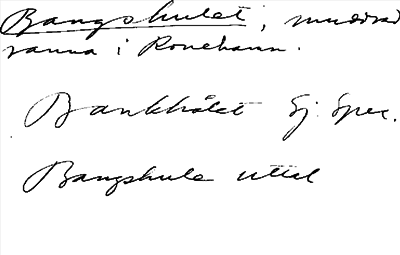 Bangshulet, muddrad
ränna i Ronehamn.
Bankhålet Ej. Spec.
Bangshule uttal